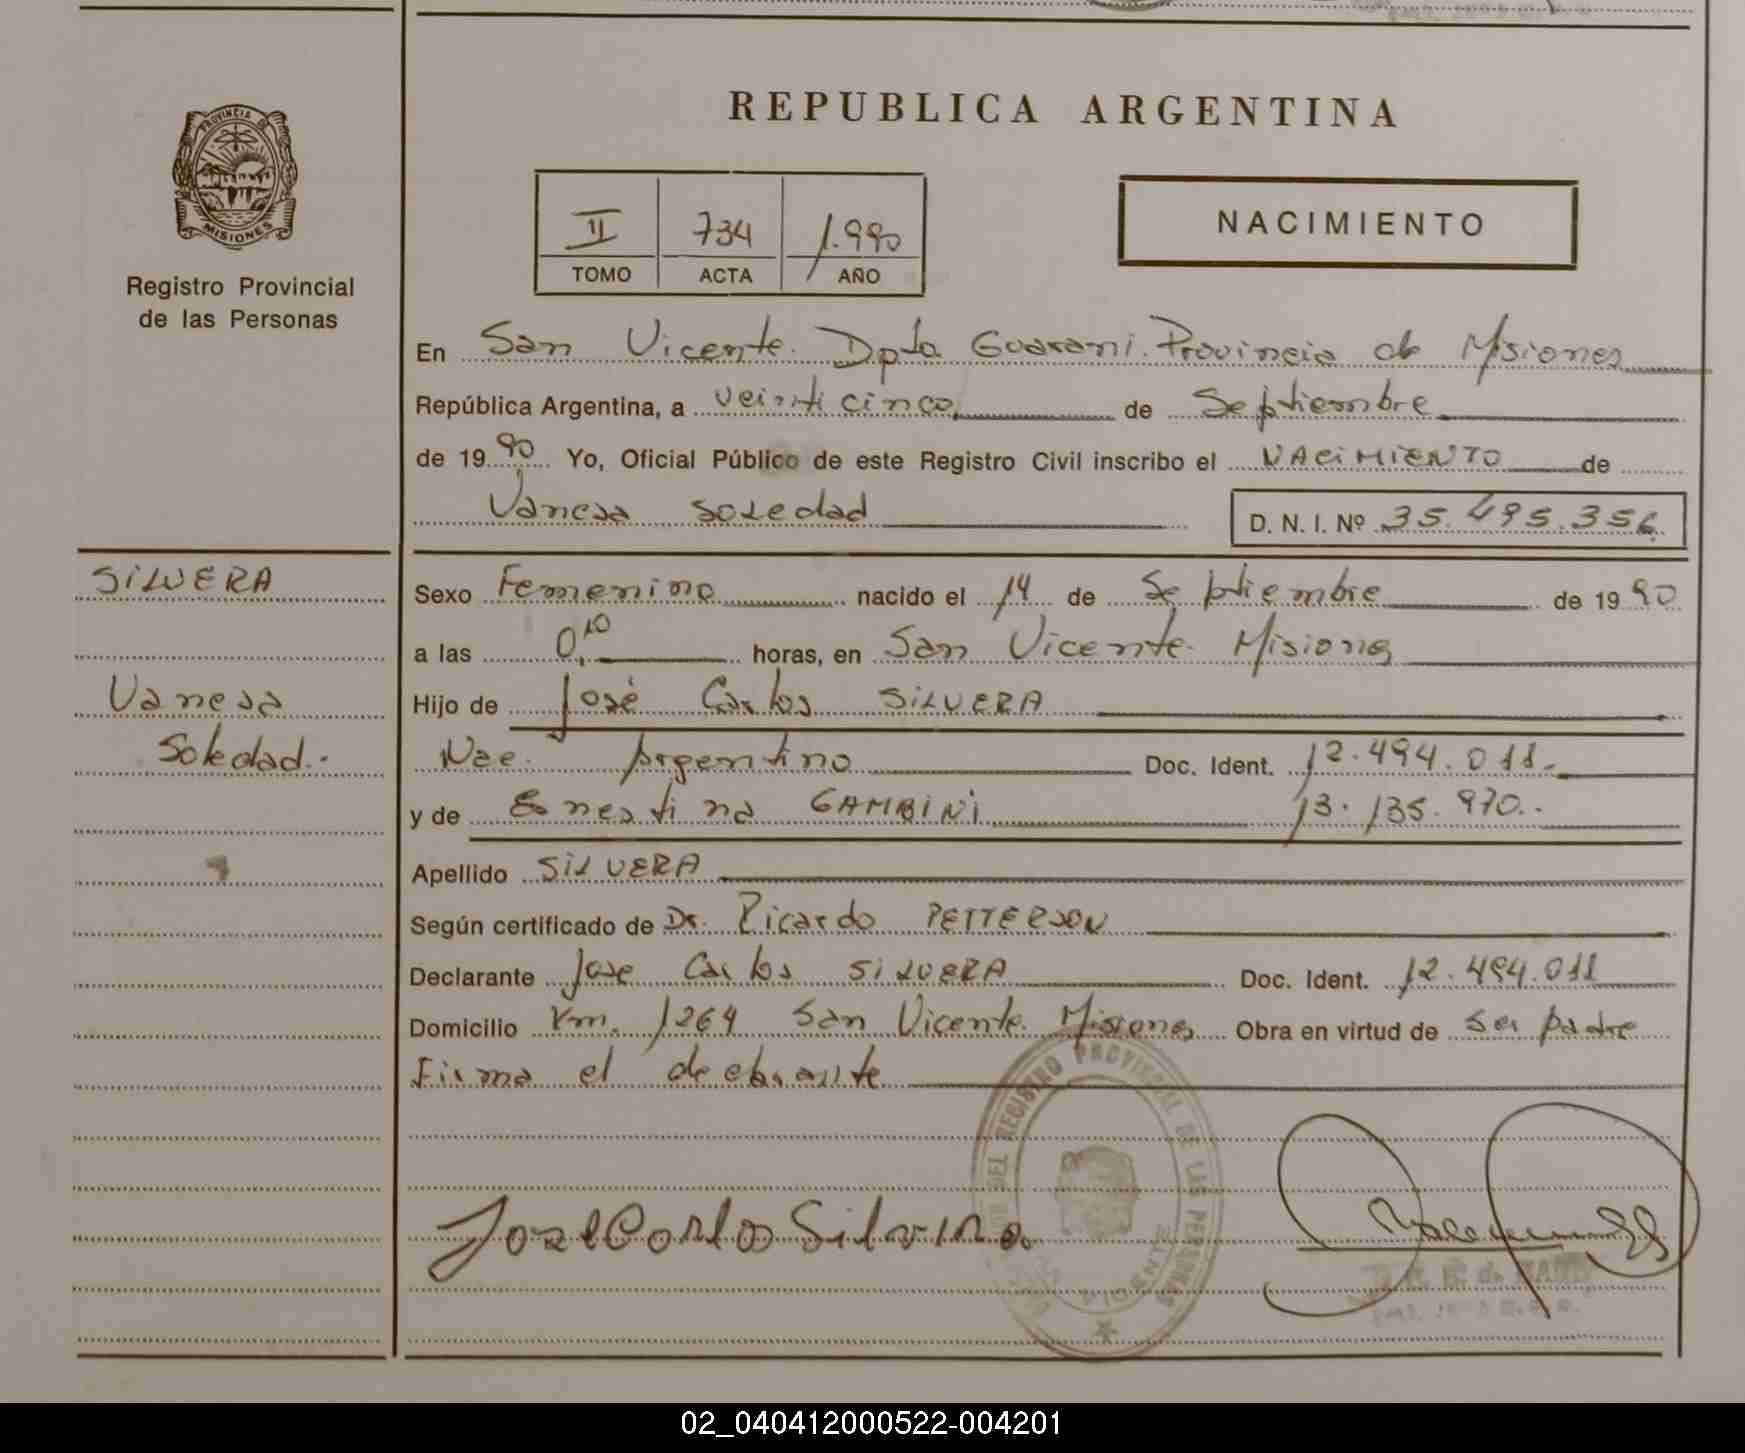 REPUBLICA ARGENTINA
PROVINCIA DE
MISIONES
Registro Provincial
de las Personas
II 734 1.990
TOMO ACTA AÑO
NACIMIENTO
En San Vicente. Dpto Guarani. Provincia de Misiones
República Argentina, a veinticinco de Septiembre
de 1990 Yo, Oficial Público de este Registro Civil inscribo el NACIMIENTO de
Vanesa Soledad D. N. I. Nº 35.495.356.
SILVERA
Vanesa
Soledad.-
Sexo Femenino nacido el 14 de Septiembre de 1990
a las 0,10 horas, en San Vicente. Misiones
Hijo de José Carlos SILVERA
Nac. Argentino Doc. Ident. 12.494.011.-
y de Ernestina GAMBINI 13.135.970.-
Apellido SILVERA
Según certificado de Dr. Ricardo PETTERSON
Declarante Jose Carlos SILVERA Doc. Ident. 12.494.011
Domicilio Km. 1264 San Vicente. Misiones Obra en virtud de ser padre
Firma el declarante
DEL REGISTRO PROVINCIAL DE LAS PERSONAS
Jose Carlos Silvera
02_040412000522-004201